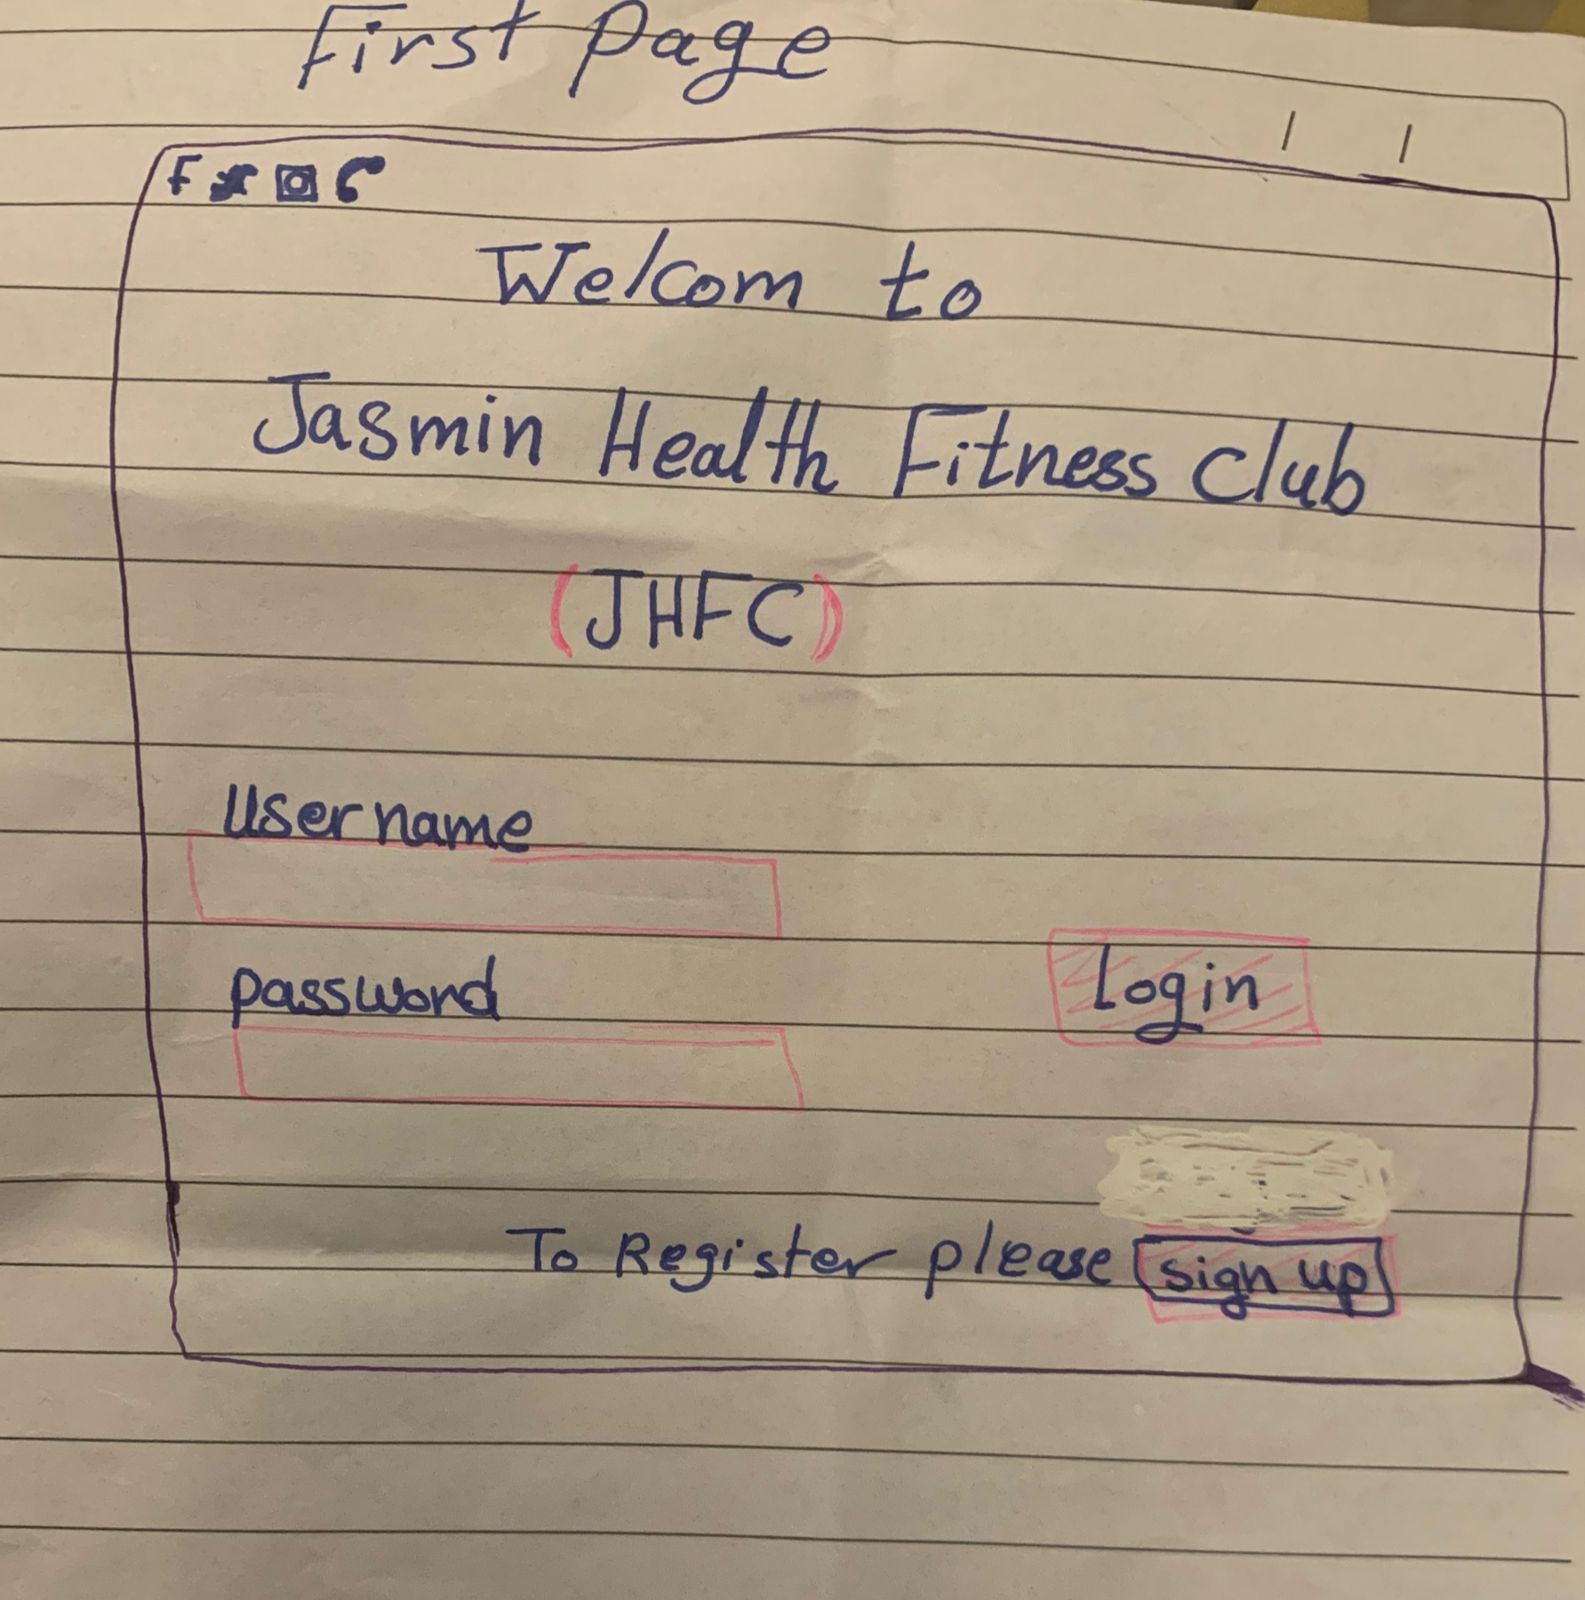 First page
F
Welcom to
Jasmin Health Fitness Club
(JHFC)
Username
password
Login
To Register please sign up